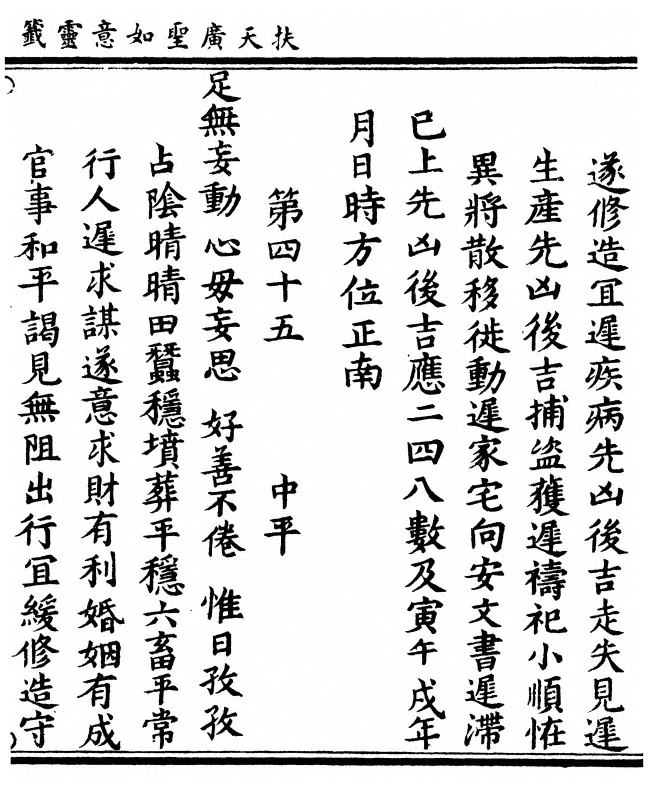 扶天廣聖如意靈籤
遂修造冝遲疾病先凶後吉走失見遲
生産先凶後吉捕盜獲遲禱祀小順恠
異將散移徙動遲家宅向安文書遲滯
已上先凶後吉應二四八數及寅午戌年
月日時方位正南
第四十五 中平
足無妄動 心毋妄思 好善不倦 惟日孜孜
占陰晴晴田蠶穩墳葬平穩六畜平常
行人遲求謀遂意求財有利婚姻有成
官事和平謁見無阻出行冝緩修造守